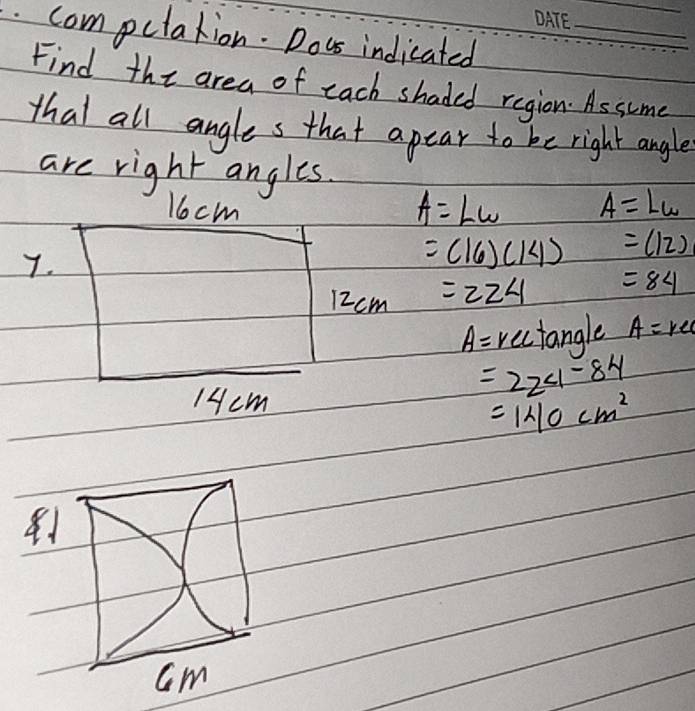 DATE
. Compctation. Dous indicated
Find the area of each shaded region. Assume
that all angles that apear to be right angle
are right angles.
16cm
7.
12cm
14cm
A = Lw
= (16)(14)
= 224
A = Lw
= (12)
= 84
A = rectangle A = rec
= 224 - 84
= 140 cm²
8.)
6m